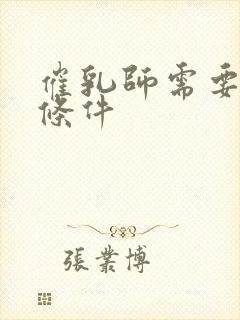 催乳師需要
條件
張業博